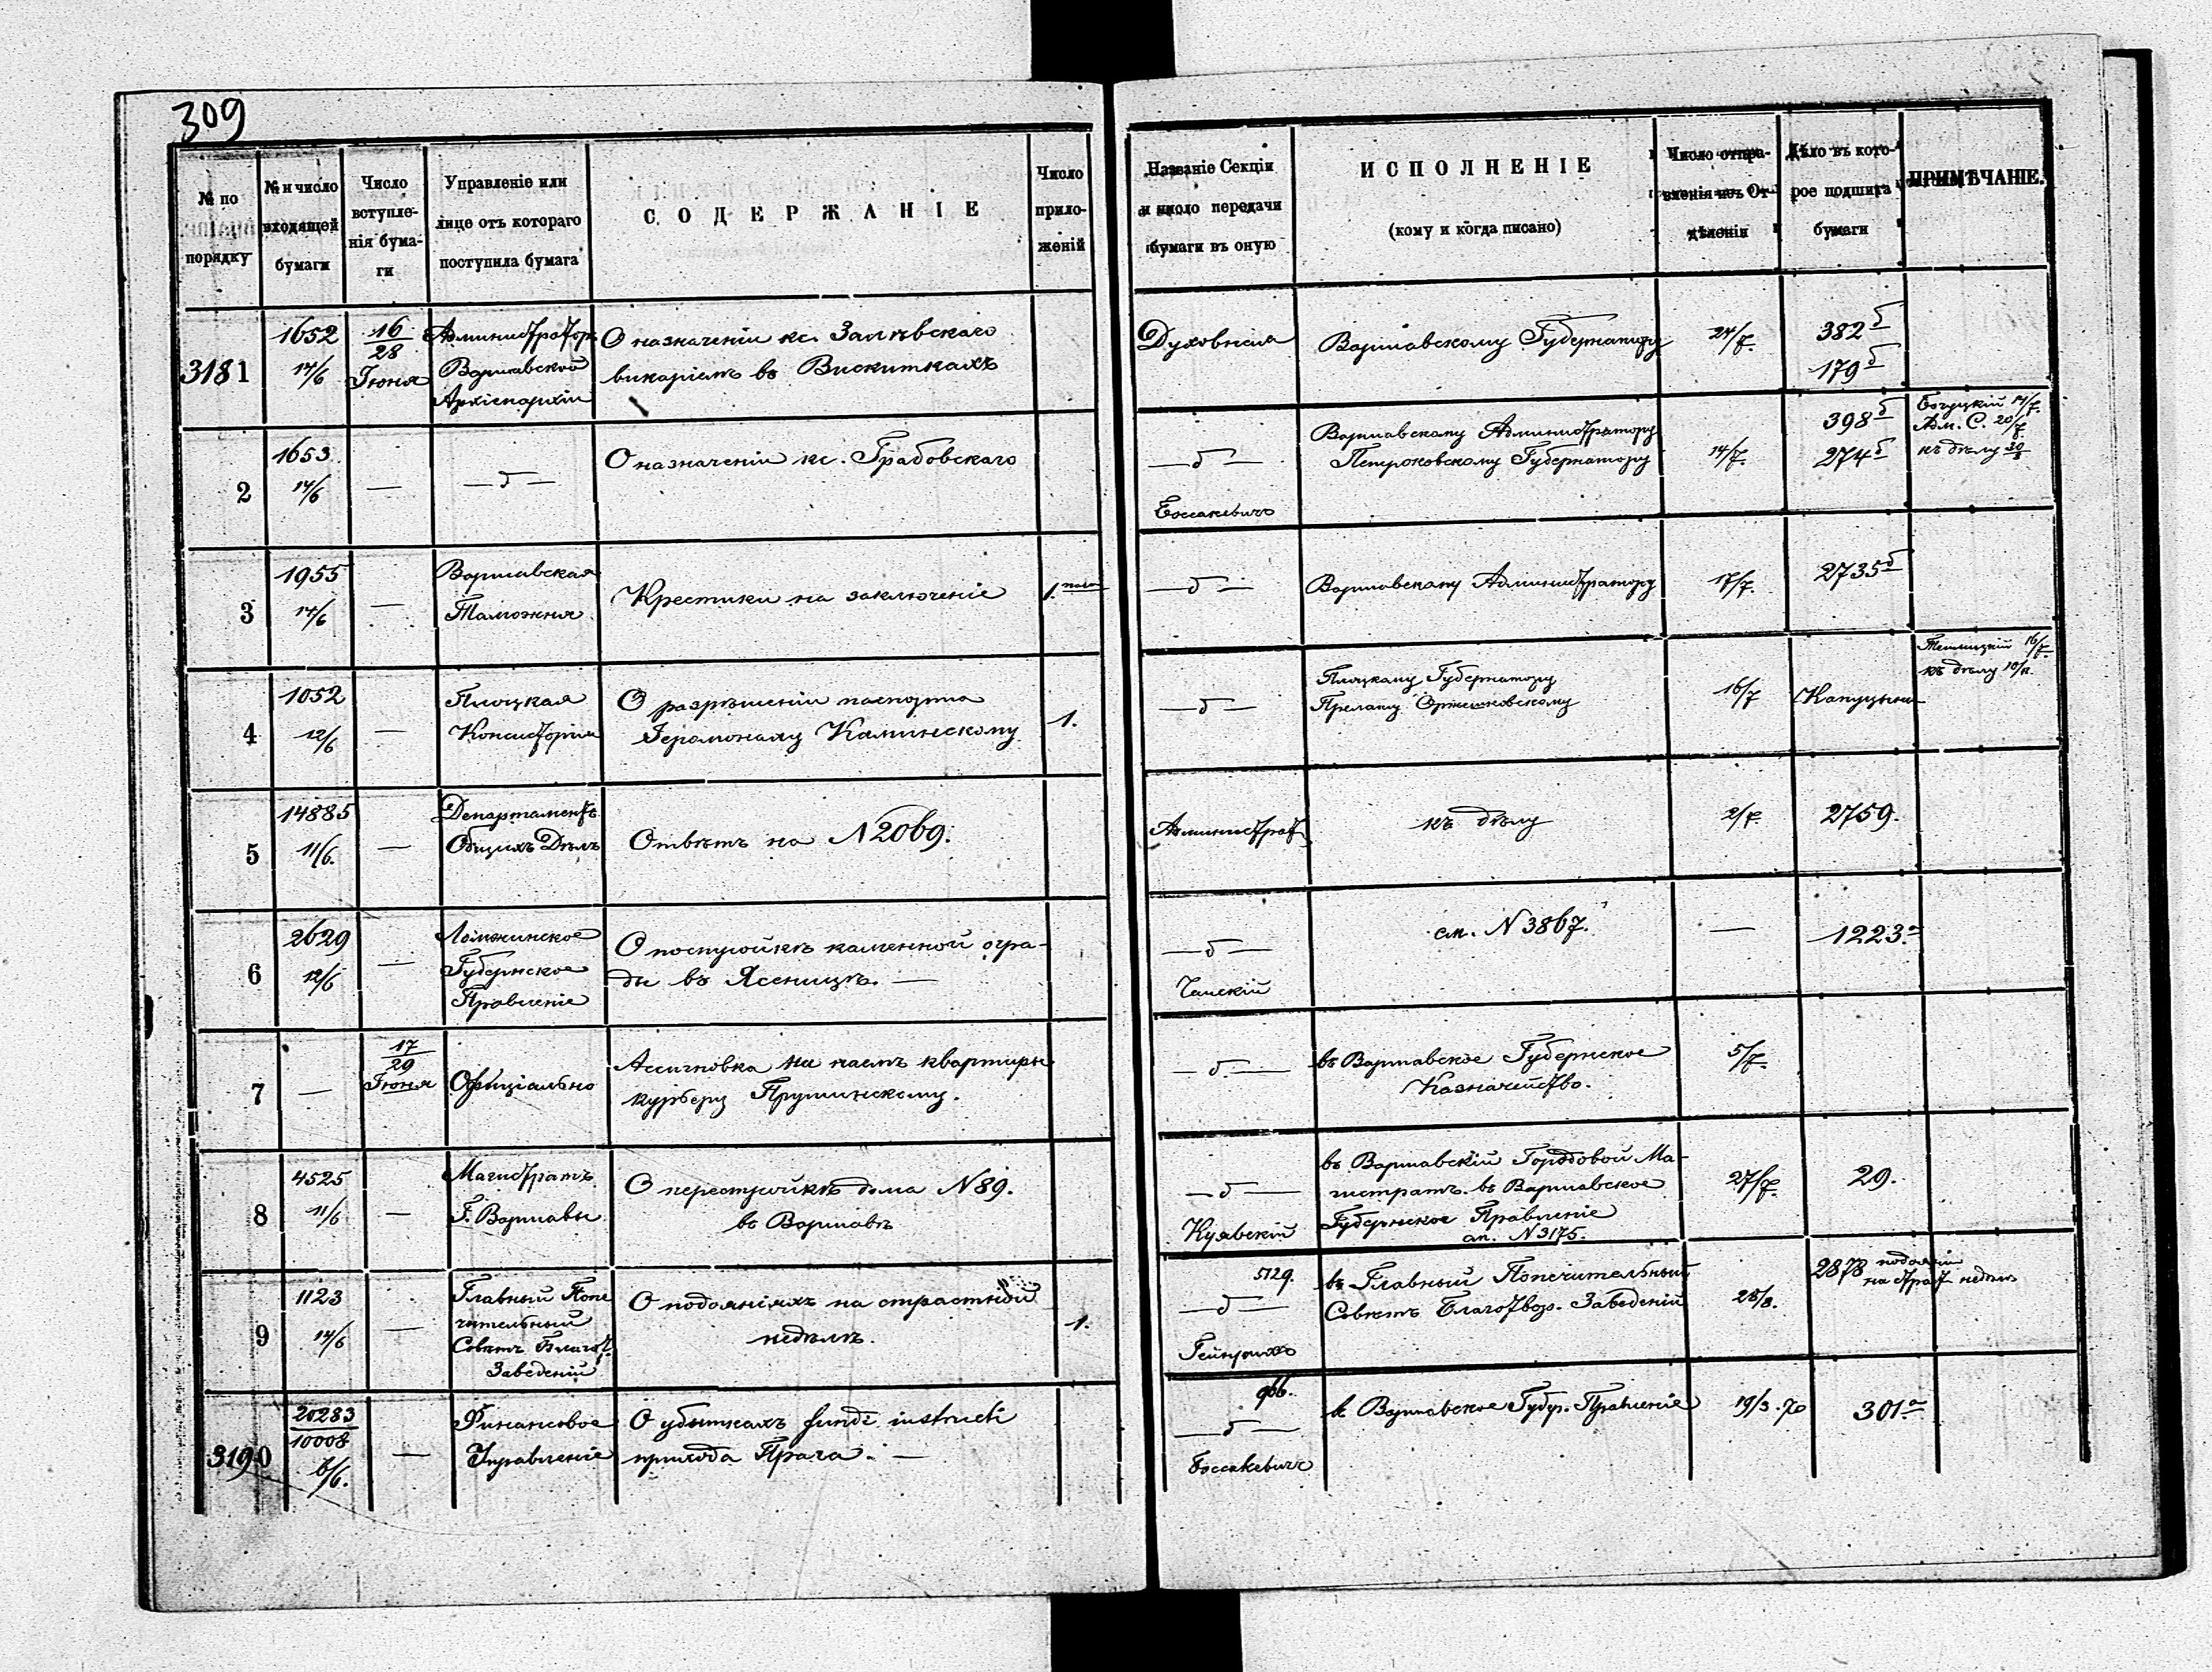 309
№ по порядку
№ и число входящей бумаги
Число вступле-нія бума-ги
Управленіе или лице отъ котораго поступила бумага
СОДЕРЖАНІЕ
Число прило-женій
Названіе Секціи и число передачи бумаги въ оную
ИСПОЛНЕНІЕ
(кому и когда писано)
Число отпра-вленія изъ От-дѣленія
Дѣло въ кото-рое подшита бумаги
ПРИМѢЧАНІЕ.
3181
1652
14/6
16/28 Іюня
Администраторъ
Варшавской
Архіепархіи
О назначеніи кс. Залѣвскаго
викаріемъ въ Вискиткахъ
Духовная
Варшавскому Губернатору
24/7.
382 б
179 б
2
1653
14/6
—
— б —
О назначеніи кс. Грабовскаго
— б —
Боссакевичъ
Варшавскому Администратору
Петроковскому Губернатору
14/7.
398 б
274 б
14/7.
Адм. С. 20/7.
къ дѣлу
3
1955
14/6
—
Варшавская
Таможня
Крестики на заключеніе
1.
— б —
Варшавскому Администратору
17/7.
2735 б
4
1052
12/6
—
Плоцкая
Консисторія
О разрѣшеніи паспорта
Іеромонаху Каминскому
1.
— б —
Плоцкому Губернатору
Прелату Оржешковскому
16/7
Капуцыны
16/7.
къ дѣлу
5
14885
11/6.
—
Департаментъ
Общихъ Дѣлъ
Отвѣтъ на N 2069.
Администрат
къ дѣлу
2/7.
2759.
6
2629
12/6
—
Ломжинское
Губернское
Правленіе
О постройкѣ каменной огра-
ды въ Ясеницѣ. —
— б —
см. N 3867.
—
1223. а
7
—
17/29 Іюня
Офиціально
Ассигновка на наемъ квартиры
курьеру Прушинскому.
— б. —
въ Варшавское Губернское
Казначейство.
5/7.
8
4525
11/6
—
Магистратъ
Г. Варшавы
О перестройкѣ дома N 89.
въ Варшавѣ
— б —
Куявскій
въ Варшавскій Городовой Ма-
гистратъ. въ Варшавское
Губернское Правленіе
см. N 3175.
27/7.
29.
9
1123
14/6
—
Главный Попе
чительный
Совѣтъ Благот.
Заведеній
О подаяніяхъ на страстной
недѣлѣ.
1.
5129.
— б —
Гейнрихъ
въ Главный Попечительный
Совѣтъ Благотвор. Заведеній
28/8.
2878 подаянія
на страст недѣлѣ
3190
20283/10008
6/6.
—
Финансовое
Управленіе
О убыткахъ fundi instructi
прихода Прага. —
966.
— б —
Боссакевичъ
въ Варшавское Губер. Правленіе
19/3. 70
301. а